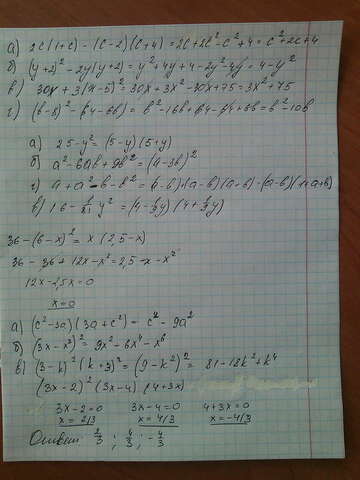 а) 2с(1+с) - (с-2)(с+4) = 2с+2с²-с²+4 = с²+2с+4
б) (y+2)² - 2y(y+2) = y²+4y+4-2y²-4y = 4-y²
в) 30x+3(x-5)² = 30x+3x²-30x+75 = 3x²+75
г) (b-8)² - (64-6b) = b²-16b+64-64+6b = b²-10b
а) 25-y² = (5-y)(5+y)
б) a²-6ab+9b² = (a-3b)²
г) a+a²-b-b² = (a-b)+(a-b)(a+b) = (a-b)(1+a+b)
в) 16 - y² = (4 - y)(4 + y)
36-(6-x)² = x(2,5-x)
36-36+12x-x² = 2,5-x-x²
12x-2,5x=0
x=0
а) (c²-3a)(3a+c²) = c⁴-9a²
б) (3x-x³)² = 9x²-6x⁴-x⁶
в) (3-k)²(k+3)² = (9-k²)² = 81-18k²+k⁴
(3x-2)²(3x-4)(4+3x)
3x-2=0 3x-4=0 4+3x=0
x=2/3 x=4/3 x=-4/3
Ответ: 2/3; 4/3; -4/3